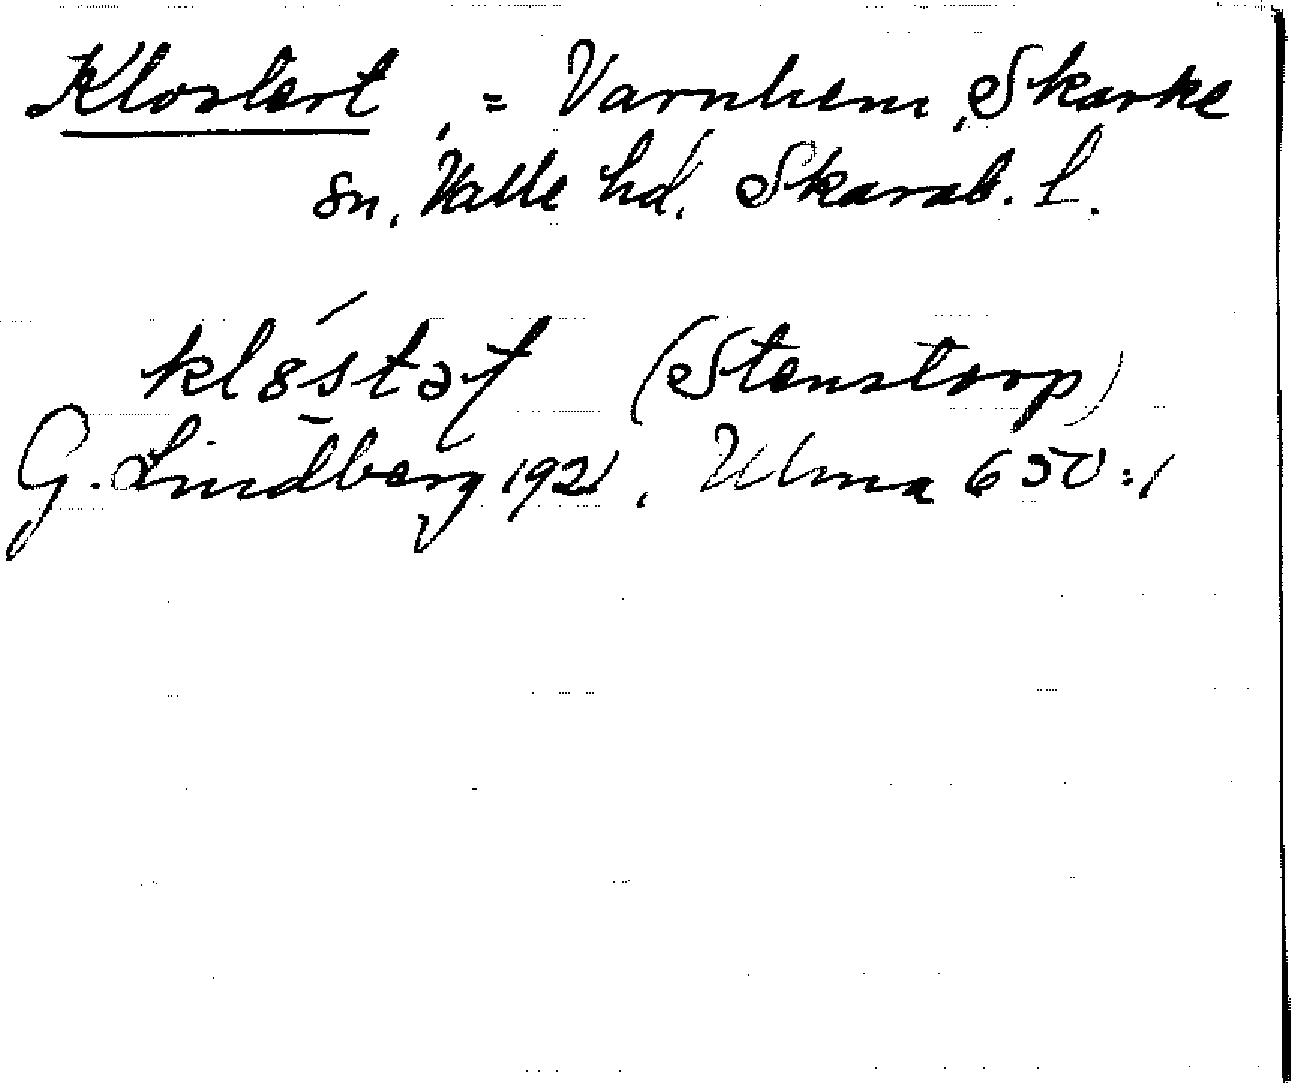 Klostert, = Varnhem, Skarke
sn, Valle hd. Skarab. l.
(Stenstorp)
G. Lindberg 1921, Ulma 650:1